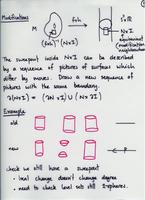 Modifications
M
foh
(foh)⁻¹(N×I)
S²×R
N×I
N
equivariant
modification
neighbourhood
The sweepout inside N×I can be described
by a sequence of pictures of surfaces which
differ by moves. Draw a new sequence of
pictures with the same boundary.
∂(N×I) = (∂N×I) ∪ (N×∂I)
Example
old
new
check we still have a sweepout
• local change doesn't change degree
• need to check level sets still 2-spheres.